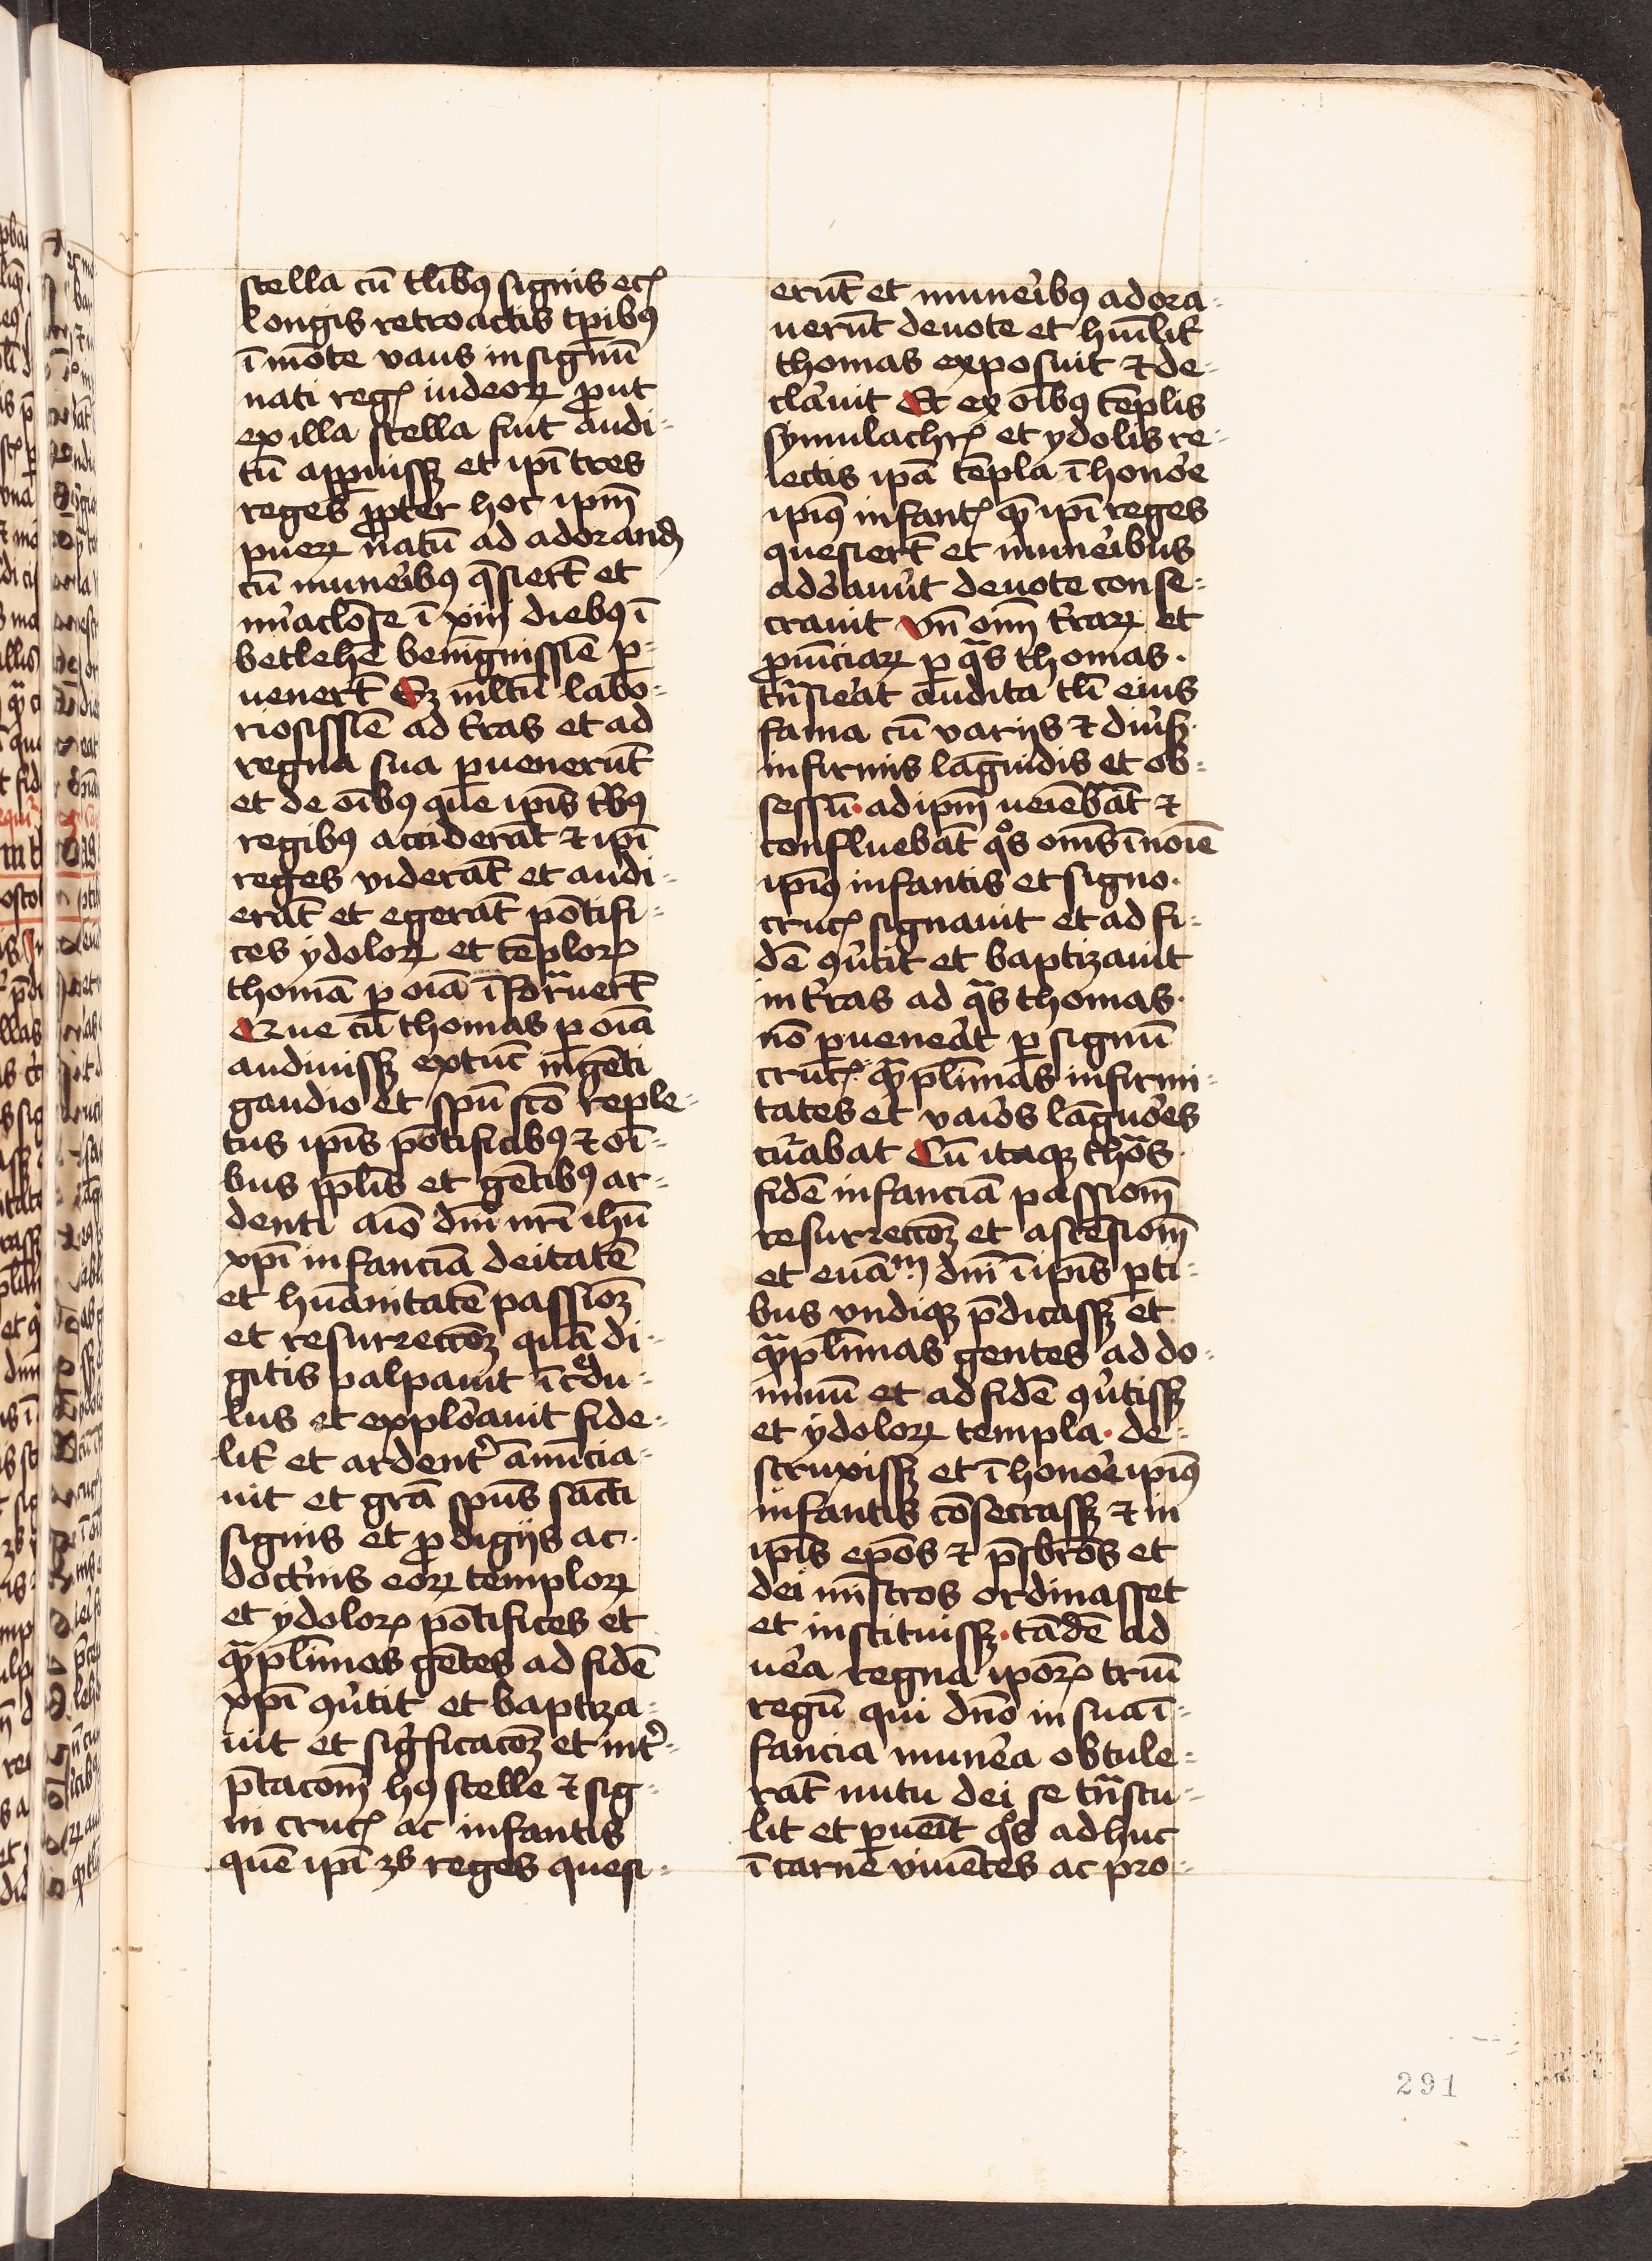 stella cū tlibꝰ signis ec̄
longis retroactis tp̄ibꝰ
ī mōte vaus in signū
nati regꝭ iudeoꝝ ꝓut
ex illa stella fuit audi-
tū apꝑuissꝫ et ip̄i tres
reges ꝓpter hoc ip̄m
pueꝝ natū ad adorandū
cū muneribꝰ q̄siert̄ et
mi̓aclose ī xiij diebꝰ ī
betlehē benignissīe ꝑ-
uenert̄ Sꝫ mltū labo-
riosissīe ad t̓ras et ad
regna sua ꝑuenerūt
et de oībꝰ que ip̄is t̓bꝰ
regibꝰ acciderāt ⁊ ip̄i
reges viderāt et audi-
erāt et egerāt pōtifi-
ces ydoloꝝ et tēploꝝ
thomā ꝑ oīa īforᵃuert̄
Que cū thomas ꝑ oīa
audiuissꝫ extūc ingēti
gaudio et sp̄u sc̄o reple-
tus ip̄is pōtificibꝰ ⁊ oī-
bus pp̄lis et gētibꝰ ar-
denti aīo dn̄i nr̄i ihū
xp̄i infanciā deitatē
et hūanitatē passioꝫ
et resurreccoꝫ quā di-
gitis palpauit īcͤdu-
lus et explo̓auit fide-
lit̓ et ardent̓ ānūcia-
uit et grā sp̄us sācti
signis et ꝓdigijs ac
doct̓nis eoꝝ temploꝝ
et ydoloꝝ pōtifices et
qᵃmpl̄imas gētes ad fidē
xp̄i ꝯu̓tit et baptiza-
uit et sigficacoꝫ et int̓-
p̄tacom̄ hꝰ stelle ⁊ sig-
ni crucꝭ ac infantis
quē ip̄i 3s reges quesi-
erūt et mune̓ibꝰ adora-
uerūt deuote et hūilit̓
thomas exposuit ⁊ de-
cla̓uit Et ex oībꝰ tēplis
symulachrꝭ et ydolis re-
iectis ip̄a tēpla ī hono̓e
ip̄iꝰ infantꝭ qᵃm ip̄i reges
quesiert̄ et mune̓ibus
ado̓auūt deuote conse-
crauit vn̄ oīm t̓raꝝ et
ꝓuīciaꝝ ꝑ qᵃs thomas
tᵃnsie̓at audita tlī eius
fama cū varijs ⁊ diu̓ß
infirmis lāguidis et ob-
sessū ad ip̄m ueiēbāt ⁊
confluebāt qᵒs om̄s ī noīe
ip̄iꝰ infantis et signo
crucꝭ signauit et ad fi-
dē ꝯu̓tit et baptizauit
in t̓ras ad qᵃs thomas
nō ꝑuene̓at ꝑ signū
crucꝭ qᵃmpl̄imas infirmi-
tates et vaios lāguo̓es
cu̓abat Cū itaqꝫ thoᵃs
fidē infanciā passiom̄
resurreccoꝫ et ascēsiom̄
et euāᵐ dn̄i ī ip̄is ꝑti-
bus vndiqꝫ p̄dicassꝫ et
qᵃmpl̄imas gentes ad do-
minū et ad fidē ꝯu̓tissꝫ
et ydoloꝝ templa de-
struxissꝫ et ī hono̓e ip̄iꝰ
infantis cōsecrassꝫ ⁊ in
ip̄is ep̄os ⁊ p̄sbr̄os et
dei mīstros ordinasset
et instituissꝫ tādē ad
ue̓a regna ip̄oꝝ triū
regū qui dn̄o in sua ī-
fancia mune̓a obtule-
rāt nutu dei se tᵃnstu-
lit et ꝑueīt qᵒs adhuc
ī carne viuētes ac pro-
291